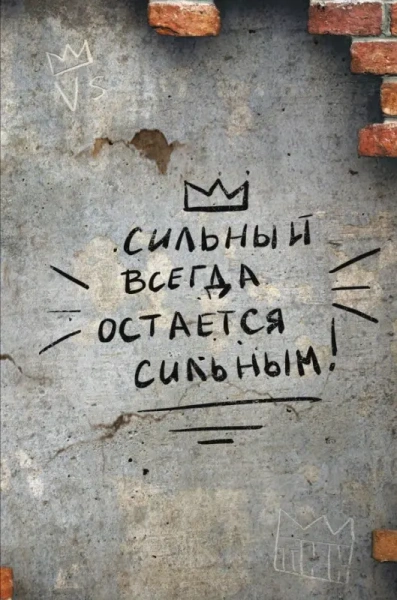 VS
СИЛЬНЫЙ
ВСЕГДА
ОСТАЕТСЯ
СИЛЬНЫМ!